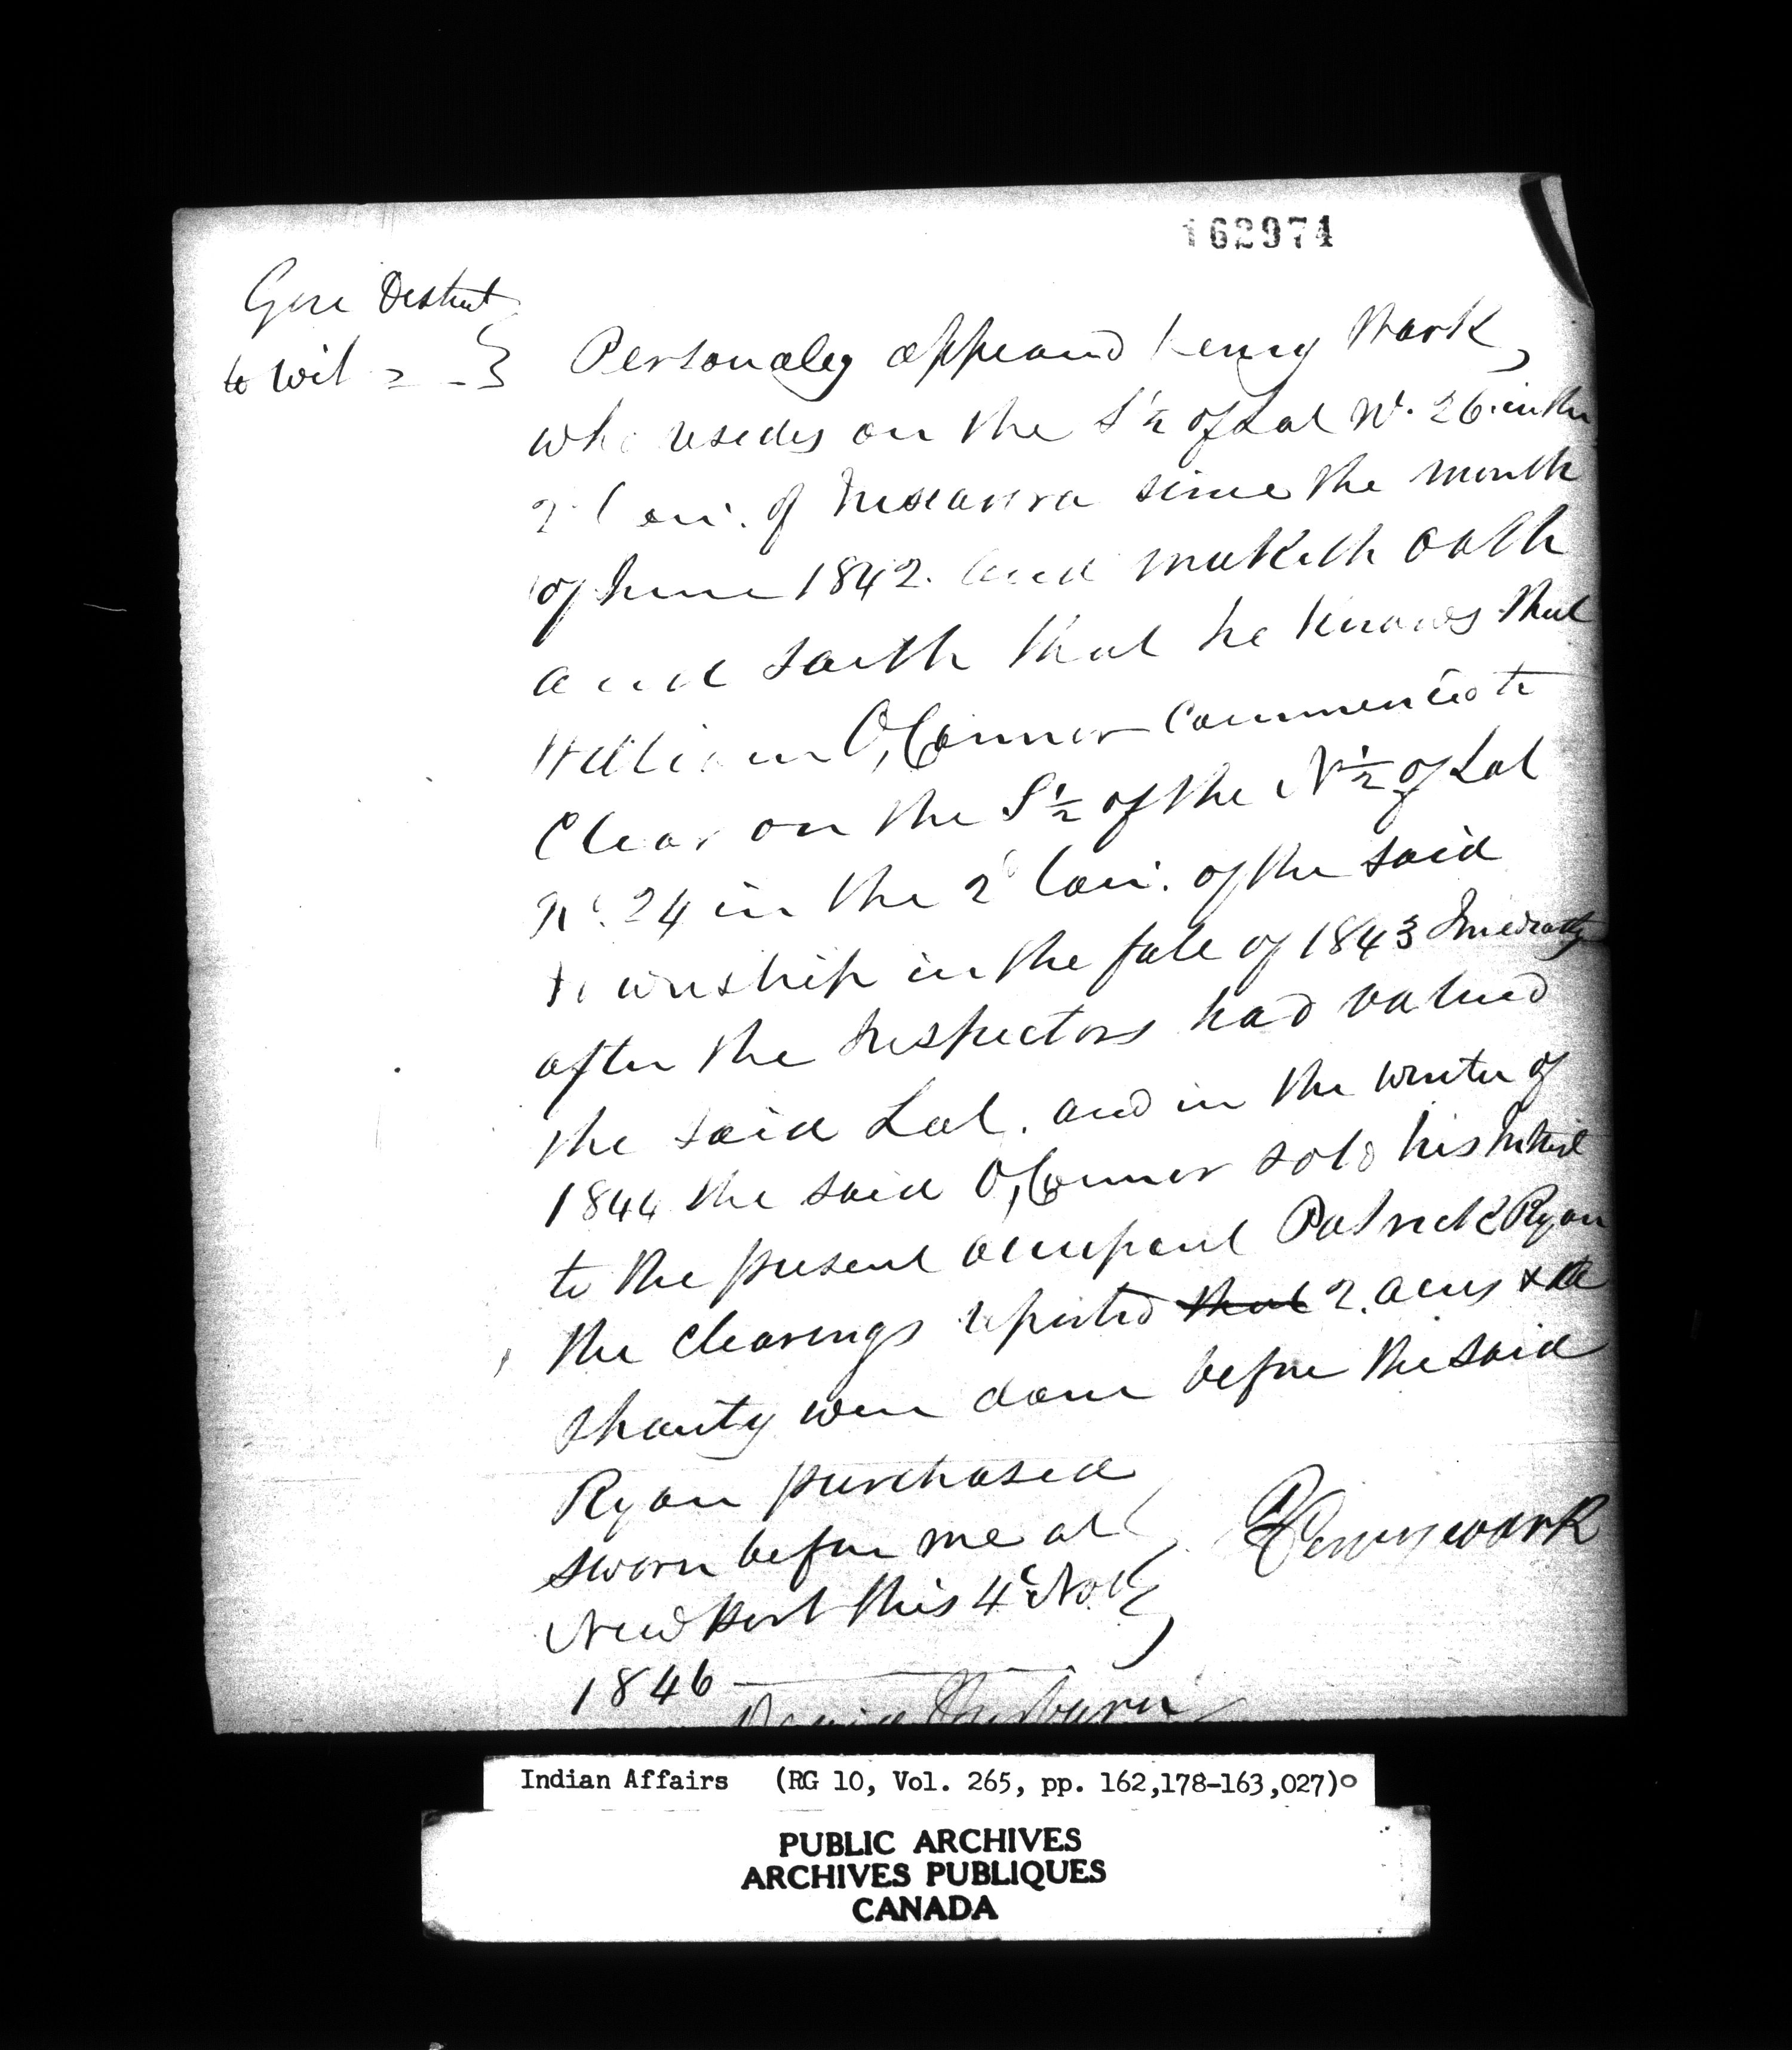 162974
Gore District
to wit
Personaley appeared Henry Wark
who resides on the S ½ of Lot No. 26 in the
2d Con. of Tuscarora since the month
of June 1842. and maketh oath
and saith that he knows that
William O,Connor commenced to
Clear on the S ½ of the N ½ of Lot
No. 24 in the 2d Con. of the said
township in the fall of 1843 Imediatly
after the Inspectors had valued
the said Lot. and in the winter of
1844 the said O,Connor sold his Intrest
to the present occupant Patrick Ryan
the clearings reported that 2. acres & the
shanty were done before the said
Ryan purchased
sworn before me at
Newport this 4th Nov.
1846
Henry wark
David Thorburn
Indian Affairs (RG 10, Vol. 265, pp. 162,178-163,027)
PUBLIC ARCHIVES
ARCHIVES PUBLIQUES
CANADA